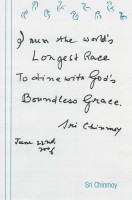 I run the world's
Longest Race
To dine with God's
Boundless Grace.
Sri Chinmoy
June 22nd
2006
Sri Chinmoy